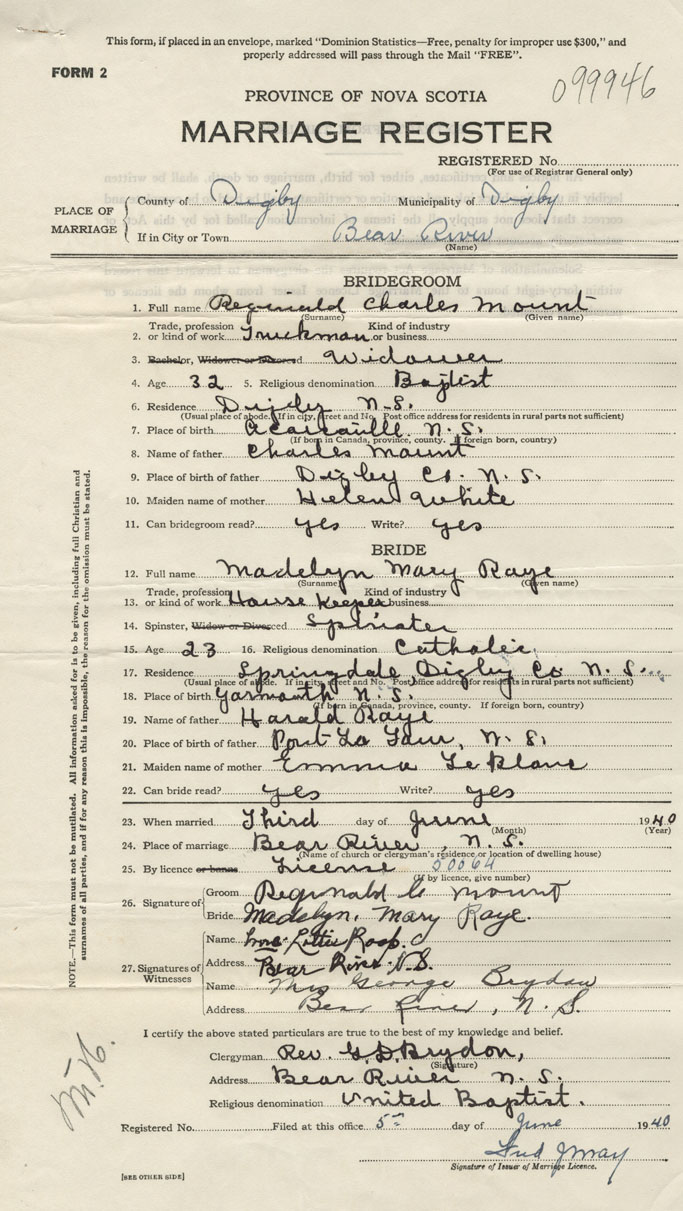 This form, if placed in an envelope, marked "Dominion Statistics—Free, penalty for improper use $300," and
properly addressed will pass through the Mail "FREE".
FORM 2
099946
PROVINCE OF NOVA SCOTIA
MARRIAGE REGISTER
REGISTERED No.
(For use of Registrar General only)
PLACE OF MARRIAGE
County of Digby Municipality of Digby
If in City or Town Bear River
(Name)
BRIDEGROOM
1. Full name Reginald Charles Mount
(Surname) (Given name)
2. Trade, profession or kind of work Truckman Kind of industry or business
3. Bachelor, Widower or Divorced Widower
4. Age 32 5. Religious denomination Baptist
6. Residence Digby N.S.
(Usual place of abode. If in city, street and No. Post office address for residents in rural parts not sufficient)
7. Place of birth Acaciaville N.S.
(If born in Canada, province, county. If foreign born, country)
8. Name of father Charles Mount
9. Place of birth of father Digby Co. N.S.
10. Maiden name of mother Helen White
11. Can bridegroom read? yes Write? yes
BRIDE
12. Full name Madelyn Mary Raye
(Surname) (Given name)
13. Trade, profession or kind of work House keeper Kind of industry business
14. Spinster, Widow or Divorced Spinster
15. Age 23 16. Religious denomination Catholic
17. Residence Springdale Digby Co N.S.
(Usual place of abode. If in city, street and No. Post office address for residents in rural parts not sufficient)
18. Place of birth Yarmouth N.S.
(If born in Canada, province, county. If foreign born, country)
19. Name of father Harald Raye
20. Place of birth of father Port La Tour, N.S.
21. Maiden name of mother Emma Le Blanc
22. Can bride read? yes Write? yes
23. When married Third day of June 1940
(Month) (Year)
24. Place of marriage Bear River, N.S.
(Name of church or clergyman's residence, or location of dwelling house)
25. By licence or banns License 50064
(If by licence, give number)
26. Signature of
Groom Reginald C Mount
Bride Madelyn Mary Raye.
27. Signatures of Witnesses
Name Mrs Lottie Roop
Address Bear River N.S.
Name Mrs George Brydon
Address Bear River, N.S.
I certify the above stated particulars are true to the best of my knowledge and belief.
Clergyman Rev. G.D. Brydon,
(Signature)
Address Bear River N.S.
Religious denomination United Baptist.
Registered No. Filed at this office 5th day of June 1940
Fred J May
Signature of Issuer of Marriage Licence.
[SEE OTHER SIDE]
NOTE.—This form must not be mutilated. All information asked for is to be given, including full Christian and
surnames of all parties, and if for any reason this is impossible, the reason for the omission must be stated.